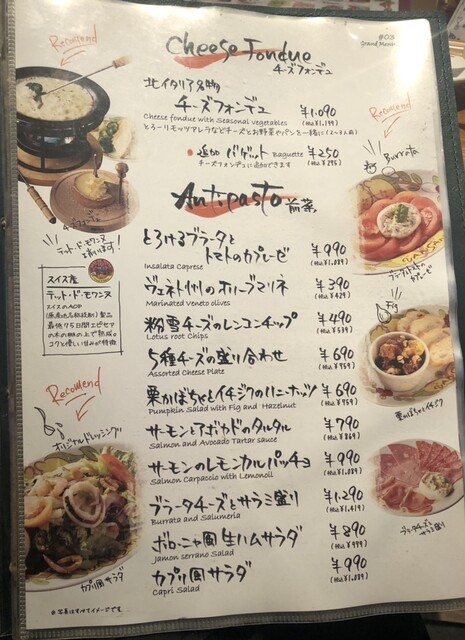 #005
Grand Menu
Recomend
Cheese Fondue
チーズフォンデュ
北イタリア名物
チーズフォンデュ ¥1.090
Cheese fondue with Seasonal vegetables (tax ¥1,199)
とろ〜りモッツァレラなどチーズとお野菜やパンと一緒に(2〜3人前)
追加 バゲット Baguette ¥250
チーズフォンデュに追加できます (tax ¥275)
チーズフォンデュ
テット・ド・モワンヌ
スイス産
テット・ド・モワンヌ
スイスのAOP
(原産地名称保護)製品
最低75日間エピセア
の木の棚の上で熟成
コクと優しい甘みが特徴
Recomend
Burrata
ブラータトマトの
カプレーゼ
Fig
栗かぼちゃとイチジク
ブラータチーズと
サラミ盛り
Antipasto 前菜
とろけるブラータと
トマトのカプレーゼ ¥990
Insalata Caprese (tax ¥1,089)
ヴェネト州のオリーブマリネ ¥390
Marinated Veneto olives (tax ¥429)
粉雪チーズのレンコンチップ ¥490
Lotus root Chips (tax ¥539)
5種チーズの盛り合わせ ¥690
Assorted Cheese Plate (tax ¥759)
栗かぼちゃとイチジクのハニーナッツ ¥690
Pumpkin Salad with Fig and Hazelnut (tax ¥759)
サーモンとアボカドのタルタル ¥790
Salmon and Avocado Tartar sauce (tax ¥869)
サーモンのレモンカルパッチョ ¥990
Salmon Carpaccio with Lemonoil (tax ¥1,089)
ブラータチーズとサラミ盛り ¥1.290
Burrata and Salumeria (tax ¥1,419)
ボローニャ風 生ハムサラダ ¥890
Jamon serrano Salad (tax ¥979)
カプリ風サラダ ¥990
Capri Salad (tax ¥1,089)
Recomend
オリジナルドレッシング!
カプリ風サラダ
※写真はすべてイメージです